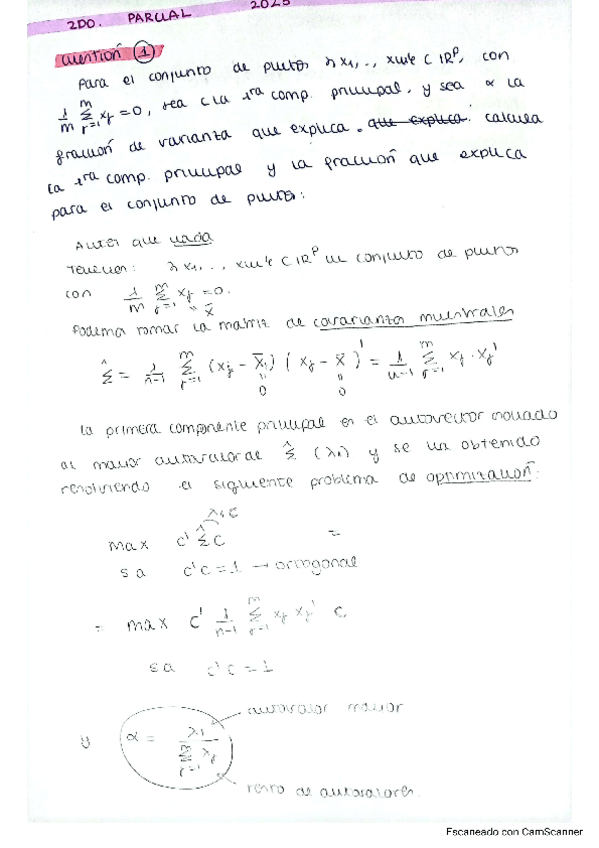 2DO. PARCIAL 2025
Cuestión ①
Para el conjunto de puntos {x1, .., xm} ⊂ ℝᵖ, con
1/m Σ_{j=1}^m xj = 0, sea c la 1ra comp. principal, y sea α la
fracción de varianza que explica. que explica. calcula
la 1ra comp. principal y la fracción que explica
para el conjunto de puntos:
Antes que nada
Tenemos: {x1, .., xm} ⊂ ℝᵖ un conjunto de puntos
con 1/m Σ_{j=1}^m xj = 0.
" x̄
Podemos tomar la matriz de covarianzas muestrales
Σ̂ = 1/(n-1) Σ_{j=1}^m (xj - x̄)(xj - x̄)' = 1/(n-1) Σ_{j=1}^m xj · xj'
" "
0 0
La primera componente principal es el autovector
al mayor autovalor de Σ̂ (λ1) y se ha obtenido
resolviendo el siguiente problema de optimización:
λ1c
max c' Σ̂ c =
s a c'c = 1 → ortogonal
= max c' 1/(n-1) Σ_{j=1}^m xj xj' c
s a c'c = 1
y α = λ1 / Σ_{j=1}^m λj
autovalor mayor
resto de autovalores.
Escaneado con CamScanner